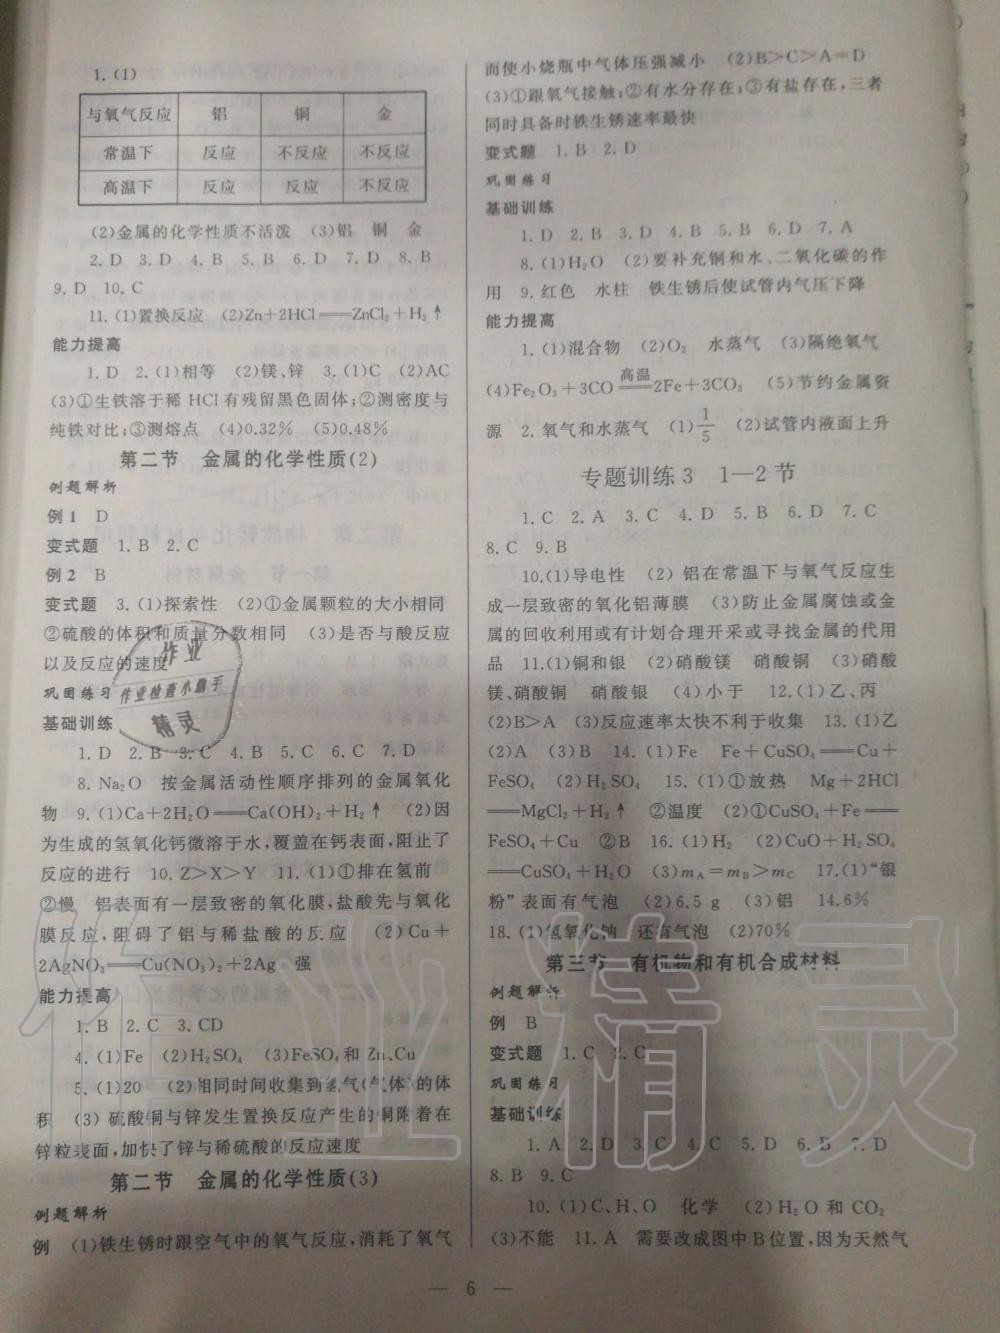 1. (1)
与氧气反应 铝 铜 金
常温下 反应 不反应 不反应
高温下 反应 反应 不反应
(2)金属的化学性质不活泼 (3)铝 铜 金
2. D 3. D 4. B 5. B 6. B 7. D 8. B
9. D 10. C
11. (1)置换反应 (2)Zn+2HCl══ZnCl₂+H₂↑
能力提高
1. D 2. (1)相等 (2)镁、锌 3. (1)C (2)AC
(3)①生铁溶于稀HCl有残留黑色固体;②测密度与
纯铁对比;③测熔点 (4)0.32% (5)0.48%
第二节 金属的化学性质(2)
例题解析
例1 D
变式题 1. B 2. C
例2 B
变式题 3. (1)探索性 (2)①金属颗粒的大小相同
②硫酸的体积和质量分数相同 (3)是否与酸反应
以及反应的速度
巩固练习
基础训练
1. D 2. B 3. C 4. B 5. C 6. C 7. D
8. Na₂O 按金属活动性顺序排列的金属氧化
物 9. (1)Ca+2H₂O══Ca(OH)₂+H₂↑ (2)因
为生成的氢氧化钙微溶于水,覆盖在钙表面,阻止了
反应的进行 10. Z>X>Y 11. (1)①排在氢前
②慢 铝表面有一层致密的氧化膜,盐酸先与氧化
膜反应,阻碍了铝与稀盐酸的反应 (2)Cu+
2AgNO₃══Cu(NO₃)₂+2Ag 强
能力提高
1. B 2. C 3. CD
4. (1)Fe (2)H₂SO₄ (3)FeSO₄和Zn、Cu
5. (1)20 (2)相同时间收集到氢气(气体)的体
积 (3)硫酸铜与锌发生置换反应产生的铜附着在
锌粒表面,加快了锌与稀硫酸的反应速度
第二节 金属的化学性质(3)
例题解析
例 (1)铁生锈时跟空气中的氧气反应,消耗了氧气
而使小烧瓶中气体压强减小 (2)B>C>A=D
(3)①跟氧气接触;②有水分存在;③有盐存在,三者
同时具备时铁生锈速率最快
变式题 1. B 2. D
巩固练习
基础训练
1. D 2. B 3. D 4. B 5. B 6. D 7. A
8. (1)H₂O (2)要补充铜和水、二氧化碳的作
用 9. 红色 水柱 铁生锈后使试管内气压下降
能力提高
1. (1)混合物 (2)O₂ 水蒸气 (3)隔绝氧气
(4)Fe₂O₃+3CO 高温══ 2Fe+3CO₂ (5)节约金属资
源 2. 氧气和水蒸气 (1)1/5 (2)试管内液面上升
专题训练3 1—2节
1. C 2. A 3. C 4. D 5. B 6. D 7. C
8. C 9. B
10. (1)导电性 (2)铝在常温下与氧气反应生
成一层致密的氧化铝薄膜 (3)防止金属腐蚀或金
属的回收利用或有计划合理开采或寻找金属的代用
品 11. (1)铜和银 (2)硝酸镁 硝酸铜 (3)硝酸
镁、硝酸铜 硝酸银 (4)小于 12. (1)乙、丙
(2)B>A (3)反应速率太快不利于收集 13. (1)乙
(2)A (3)B 14. (1)Fe Fe+CuSO₄══Cu+
FeSO₄ (2)H₂SO₄ 15. (1)①放热 Mg+2HCl
══MgCl₂+H₂↑ ②温度 (2)①CuSO₄+Fe══
FeSO₄+Cu ②B 16. (1)H₂ (2)CuO+H₂SO₄
══CuSO₄+H₂O (3)mA=mB>mC 17. (1)“银
粉”表面有气泡 (2)6.5 g (3)铝 14.6%
18. (1)氢氧化钠 还有气泡 (2)70%
第三节 有机物和有机合成材料
例题解析
例 B
变式题 1. C 2. C
巩固练习
基础训练
1. A 2. D 3. C 4. C 5. D 6. B 7. D
8. B 9. C
10. (1)C、H、O 化学 (2)H₂O和CO₂
(3)不能 11. A 需要改成图中B位置,因为天然气
— 6 —
作业
作业检查小助手
精灵
作业精灵